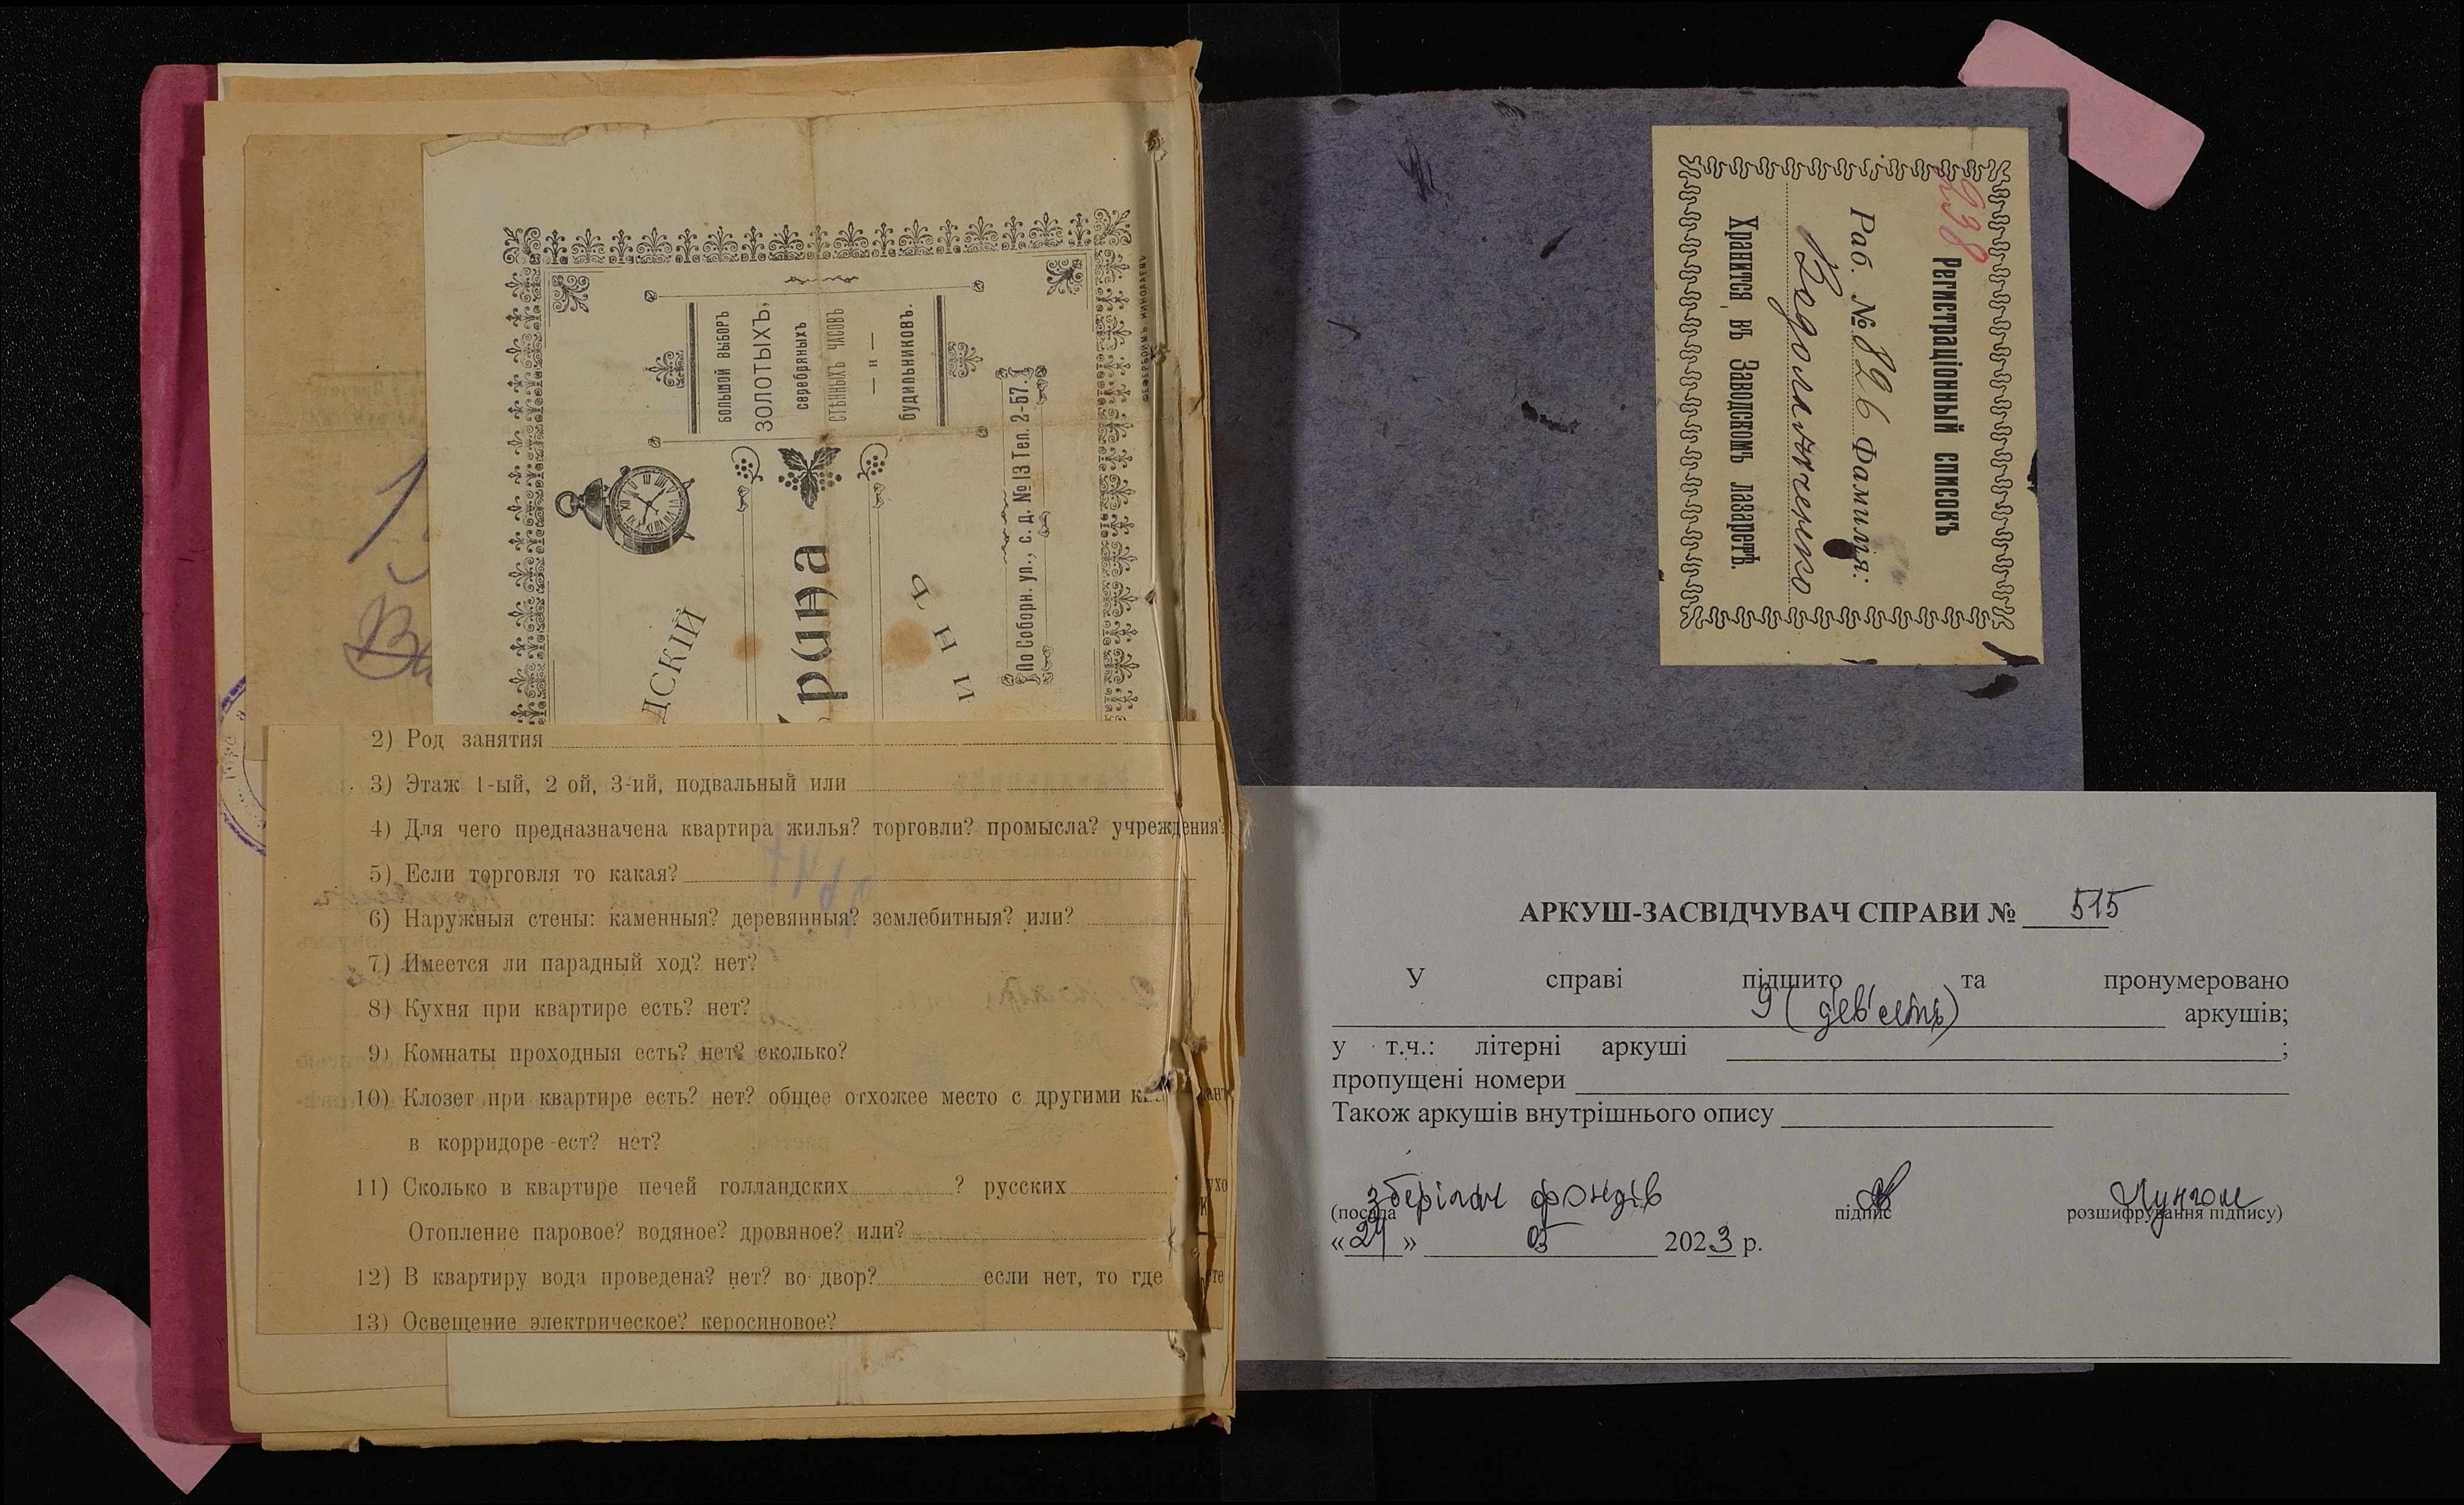 БОЛЬШОЙ ВЫБОРЪ
ЗОЛОТЫХЪ,
серебряныхъ
СТѢННЫХЪ ЧАСОВЪ
— и —
будильниковъ.
дскій
рина
инъ
По Соборн. ул., с. д. № 13 Тел. 2-57.
2) Род занятия
3) Этаж 1-ый, 2 ой, 3-ий, подвальный или
4) Для чего предназначена квартира жилья? торговли? промысла? учреждения?
5) Если торговля то какая?
6) Наружныя стены: каменныя? деревянныя? землебитныя? или?
7) Имеется ли парадный ход? нет?
8) Кухня при квартире есть? нет?
9) Комнаты проходныя есть? нет? сколько?
10) Клозет при квартире есть? нет? общее отхожее место с другими
в корридоре ест? нет?
11) Сколько в квартире печей голландских ? русских
Отопление паровое? водяное? дровяное? или?
12) В квартиру вода проведена? нет? во двор? если нет, то где
13) Освещение электрическое? керосиновое?
238
Регистраціонный списокъ
Раб. № 826 Фамилія:
Водолажченко
Хранится въ Заводскомъ лазаретѣ.
АРКУШ-ЗАСВІДЧУВАЧ СПРАВИ № 515
У справі підшито та пронумеровано
9 (дев'ять) аркушів;
у т.ч.: літерні аркуші ;
пропущені номери
Також аркушів внутрішнього опису
зберігач фондів
(посада підпис розшифрування підпису)
«24» 05 2023 р.